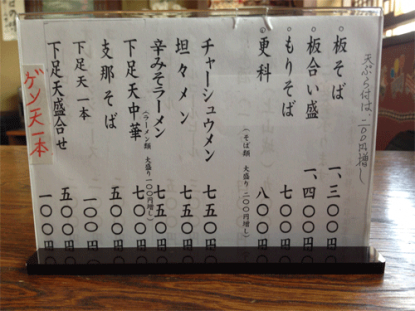 天ぷら付は二〇〇円増し
○板そば 一、三〇〇円
○板合い盛 一、四〇〇円
○もりそば 七〇〇円
○更科 八〇〇円
(そば類 大盛り二〇〇円増し)
チャーシュウメン 七五〇円
坦々メン 七五〇円
辛みそラーメン 七五〇円
(ラーメン類 大盛り一〇〇円増し)
下足天中華 七〇〇円
支那そば 五〇〇円
下足天一本 一〇〇円
下足天盛合せ 五〇〇円
ゲソ天一本 一〇〇円